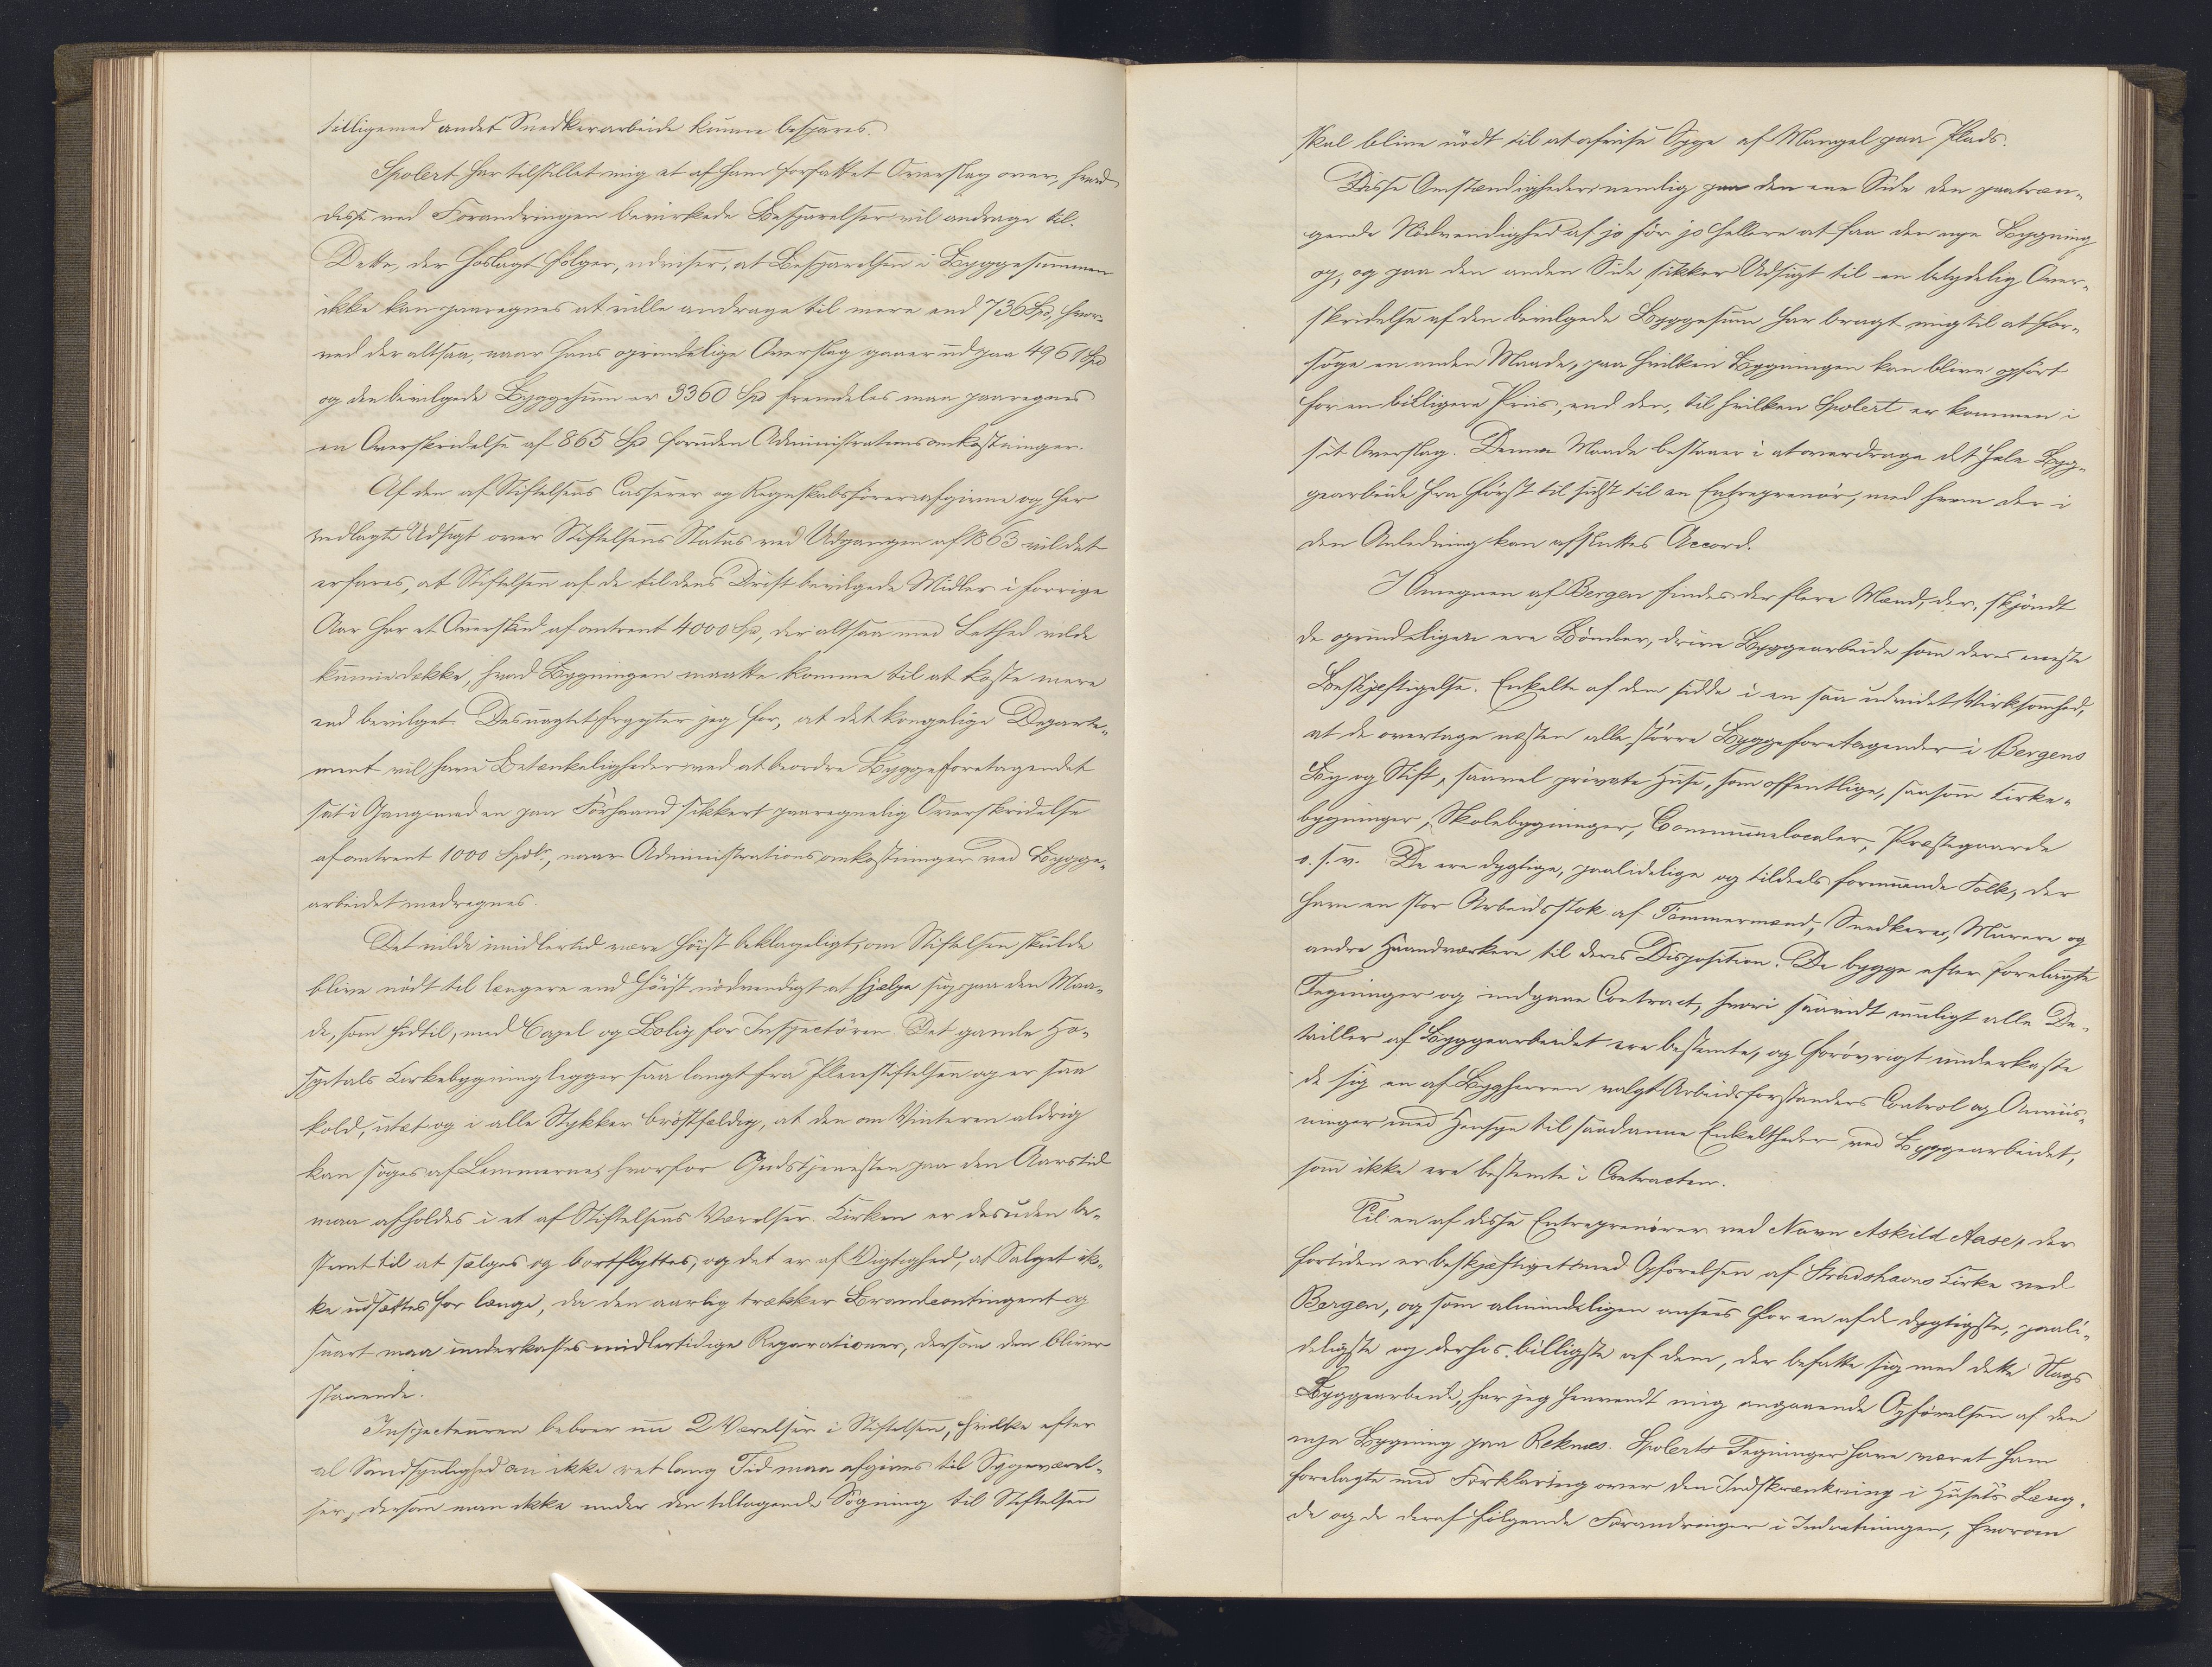 tilligemed andet Snedkerarbeide kunne bespares.
Spolert har tilstillet mig et af ham forfattet Overslag over, hvad
disse ved Forandringen bevirkede Besparelser vil andrage til.
Dette, der hoslagt følger, udviser, at Besparelsen i Byggesummen
ikke kan paaregnes at ville andrage til mere end 736 Spd, hvor-
ved der altsaa, naar hans oprindelige Overslag gaaer ud paa 4961 Spd
og den bevilgede Byggesum er 3360 Spd fremdeles maa paaregnes
en Overskridelse af 865 Spd foruden Administrationsomkostninger.
Af den af Stiftelsens Casserer og Regnskabsfører afgivne og her
vedlagte Udsigt over Stiftelsens Status ved Udgangen af 1863 vil det
erfares, at Stiftelsen af de til dens Drift bevilgede Midler i forrige
Aar har et Overskud af omtrent 4000 Spd, der altsaa med Lethed vilde
kunne dække, hvad Bygningen maatte komme til at koste mere
end bevilget. Desuagtet frygter jeg for, at det kongelige Departe-
ment vil have Betænkeligheder ved at beordre Byggeforetagendet
sat i Gang med en paa Forhaand sikkert paaregnelig Overskridelse
af omtrent 1000 Spdlr, naar Administrationsomkostninger ved Bygge-
arbeidet medregnes.
Det vilde imidlertid være høist beklageligt, om Stiftelsen skulde
blive nødt til længere end høist nødvendigt at hjælpe sig paa den Maa-
de, som hidtil, med Capel og Bolig for Inspectøren. Det gamle Ho-
spitals Kirkebygning ligger saa langt fra Pleiestiftelsen og er saa
kold, utæt og i alle Stykker brøstfældig, at den om Vinteren aldrig
kan søges af Lemmerne, hvorfor Gudstjenesten paa den Aarstid
maa afholdes i et af Stiftelsens Værelser. Kirken er desuden be-
stemt til at sælges og bortflyttes, og det er af Vigtighed, at Salget ik-
ke udsættes for længe, da den aarlig trækker Brandcontingent og
snart maa underkastes midlertidige Reparationer, dersom den bliver
staaende.
Inspecteuren beboer nu 2 Værelser i Stiftelsen, hvilke efter
al Sandsynlighed om ikke ret lang Tid maa afgives til Sygeværel-
ser, dersom man ikke under den tiltagende Søgning til Stiftelsen
skal blive nødt til at afvise Syge af Mangel paa Plads.
Disse Omstændigheder nemlig paa den ene Side den paatræn-
gende Nødvendighed af jo før jo hellere at faa den nye Bygning
op, og paa den anden Side sikker Udsigt til en betydelig Over-
skridelse af den bevilgede Byggesum har bragt mig til at for-
søge en anden Maade, paa hvilken Bygningen kan blive opført
for en billigere Priis, end den, til hvilken Spolert er kommen i
sit Overslag. Denne Maade bestaaer i at overdrage det hele Byg-
gearbeide fra først til sidst til en Entreprenør, med hvem der i
den Anledning kan afsluttes Accord.
I Omegnen af Bergen findes der flere Mænd, der, skjøndt
de oprindeligen ere Bønder, drive Byggearbeide som deres eneste
Beskjæftigelse. Enkelte af dem sidde i en saa udvidet Virksomhed,
at de overtage næsten alle større Byggeforetagender i Bergens
By og Stift, saavel private Huse, som offentlige, saasom Kirke-
bygninger, Skolebygninger, Communelocaler, Præstegaarde
o. s. v. De ere dygtige, paalidelige og tildeels formuende Folk, der
have en stor Arbeidsstok af Tømmermænd, Snedkere, Murere og
andre Haandværkere til deres Disposition. De bygge efter forelagte
Tegninger og indgaae Contract, hvori saavidt muligt alle De-
tailler af Byggearbeidet ere bestemte, og forøvrigt underkaste
de sig en af Bygherren valgt Arbeidsforstanders Control og Anviis-
ninger med Hensyn til saadanne Enkeltheder ved Byggearbeidet,
som ikke ere bestemte i Contracten.
Til en af disse Entreprenører ved Navn Askild Aase, der
fortiden er beskjæftiget med Opførelsen af Strudshavns Kirke ved
Bergen, og som almindeligen ansees for en af de dygtigste, paali-
deligste og derhos billigste af dem, der befatte sig med dette Slags
Byggearbeide, har jeg henvendt mig angaaende Opførelsen af den
nye Bygning paa Reknes. Spolerts Tegninger have været ham
forelagte med Forklaring over den Indskrænkning i Husets Læng-
de og de deraf følgende Forandringer i Indretningen, hvorom